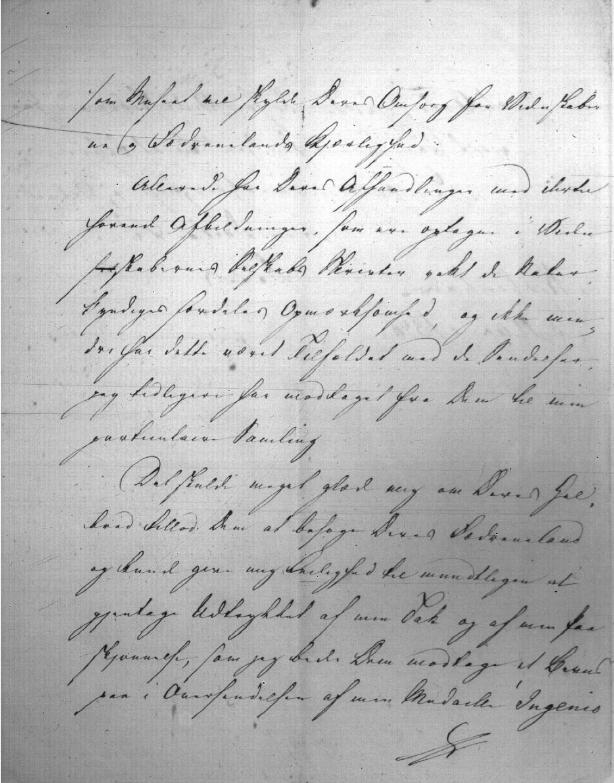 som Museet vil skylde Deres Omsorg for Videnskaber
ne og Fædrenelands Kjærlighed.
Allerede har Deres Afhandlinger med dertil
hørende Afbildninger, som ere optagne i Viden
skabernes Selskabs Skrifter vakt de Natur
kyndiges særdeles Opmærksomhed, og ikke min,
dre har dette været Tilfældet med de Sendelser,
jeg tidligere har modtaget fra Dem til min
particulaire Samling
Det skulde meget glæde mig om Deres Hel,
bred tillod Dem at besøge Deres Fædreneland
og kunde give mig Leilighed til mundtligen at
gjentage Udtrykket af min Tak og af min Paa
skjønnelse, som jeg beder Dem modtage et Beviis
paa i Oversendelsen af min Medaille Ingenio